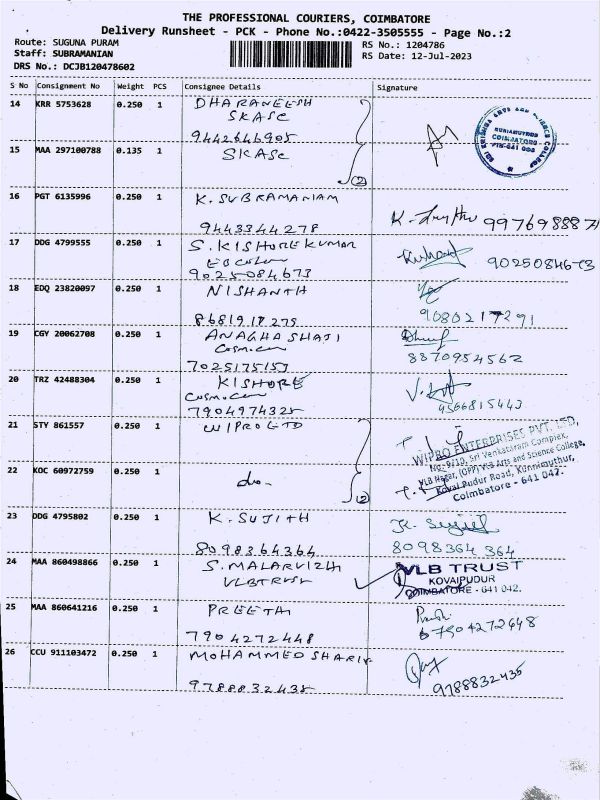 THE PROFESSIONAL COURIERS, COIMBATORE
Delivery Runsheet - PCK - Phone No.:0422-3505555 - Page No.:2
Route: SUGUNA PURAM
Staff: SUBRAMANIAN
DRS No.: DCJB120478602
RS No.: 1204786
RS Date: 12-Jul-2023
S No Consignment No Weight PCS Consignee Details Signature
14 KRR 5753628 0.250 1 DHARANEESH
SKASC
9442646905
KUNIAMUTHUR
COIMBATORE-
PIN-641 008
15 MAA 297100788 0.135 1 SKASC
(2)
16 PGT 6135996 0.250 1 K. SUBRAMANIAM
9443344278
9976988871
17 DDG 4799555 0.250 1 S. KISHORE KUMAR
9025084673
9025084673
18 EDQ 23820097 0.250 1 NISHANTH
9080217291
19 CGY 20062708 0.250 1 ANAGHA SHAJI
7025175153
8870954562
20 TRZ 42488304 0.250 1 KISHORE
7904974325
4566815443
21 STY 861557 0.250 1 WIPRO LTD
WIPRO ENTERPRISES PVT. LTD,
No: 9/10, Sri Venkatram Complex,
VLB Nagar, (OPP) VLB Arts and Science College,
Kovai Pudur Road, Kunnimuthur,
Coimbatore - 641 042.
22 KOC 60972759 0.250 1 do.
(2)
23 DDG 4795802 0.250 1 K. SUJITH
8098364364
8098364364
24 MAA 860498866 0.250 1 S. MALARVIZHI
VLB TRUST
VLB TRUST
KOVAIPUDUR
COIMBATORE - 641 042.
25 MAA 860641216 0.250 1 PREETHI
7904272448
26 CCU 911103472 0.250 1 MOHAMMED SHARIF
9788832435
9788832435